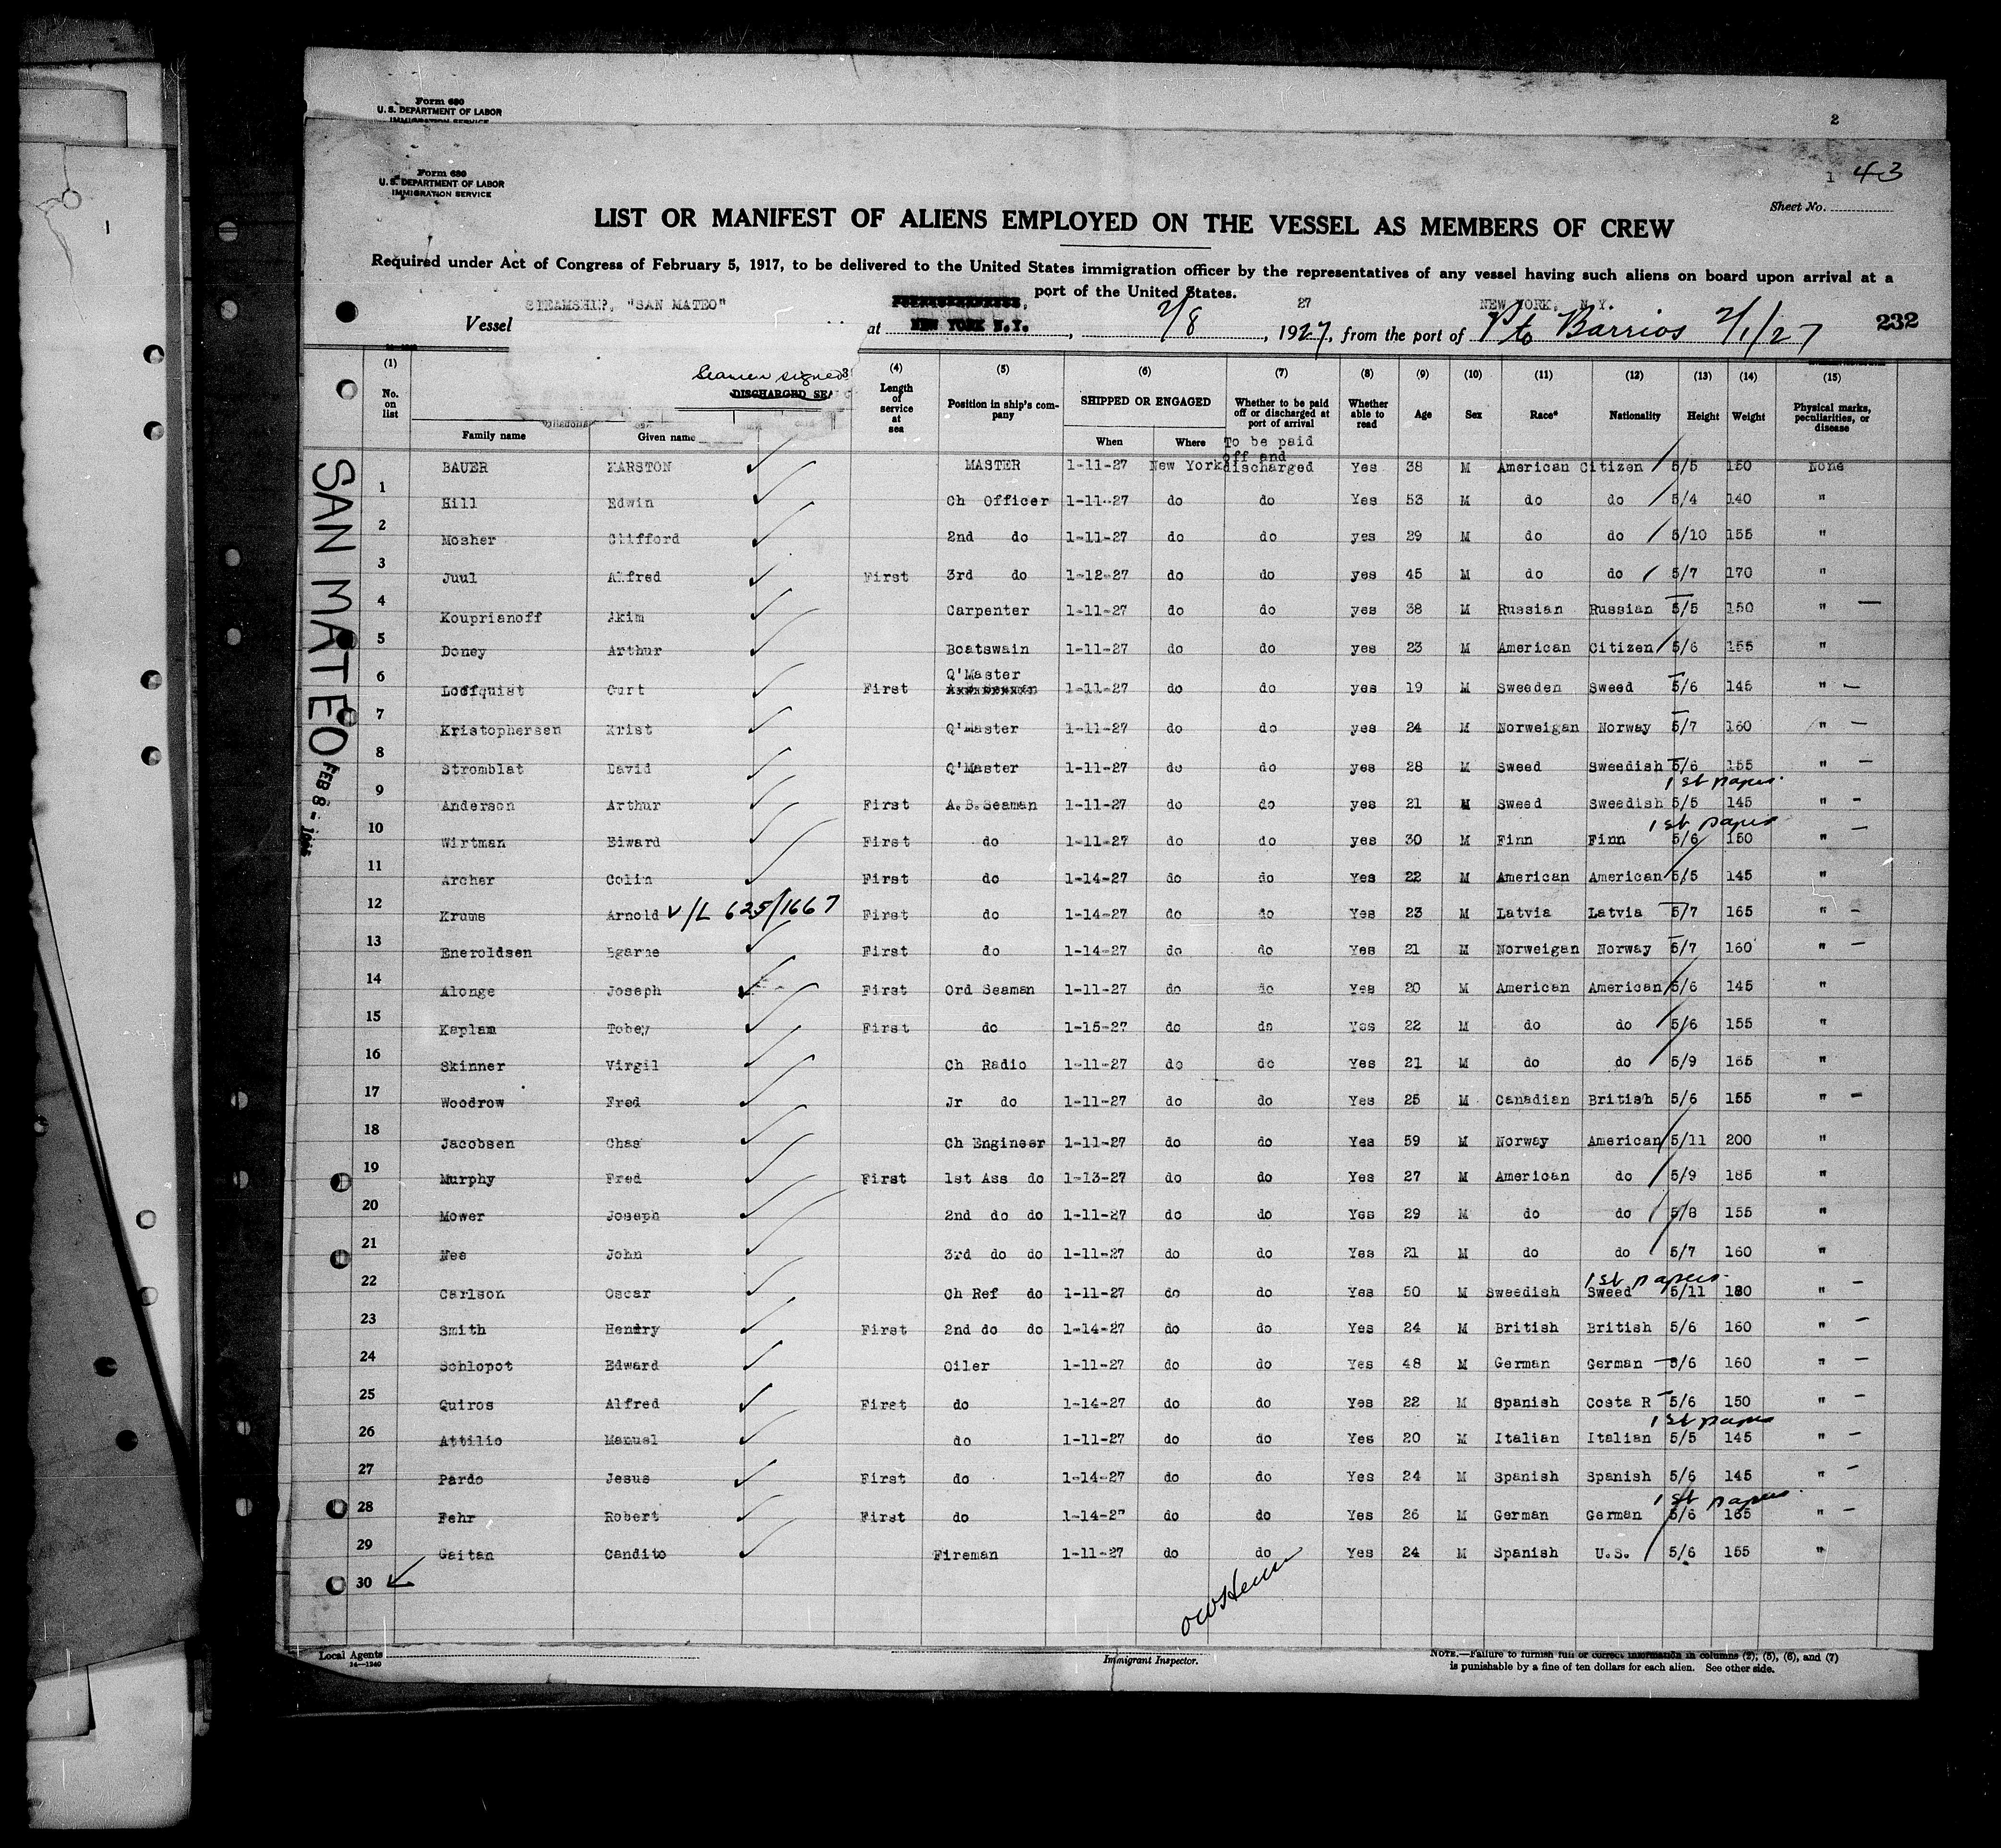 Form 680
U. S. DEPARTMENT OF LABOR
IMMIGRATION SERVICE
2
Form 680
U. S. DEPARTMENT OF LABOR
IMMIGRATION SERVICE
1 43
Sheet No.
LIST OR MANIFEST OF ALIENS EMPLOYED ON THE VESSEL AS MEMBERS OF CREW
Required under Act of Congress of February 5, 1917, to be delivered to the United States immigration officer by the representatives of any vessel having such aliens on board upon arrival at a
port of the United States.
STEAMSHIP, "SAN MATEO" 27 NEW YORK, N.Y.
Vessel at NEW YORK N.Y., 2/8, 1927, from the port of Pto Barrios 2/1/27 232
Seamen signed
DISCHARGED SEA
(1) 3 (4) (5) (6) (7) (8) (9) (10) (11) (12) (13) (14) (15)
No. on list Family name Given name Length of service at sea Position in ship's company SHIPPED OR ENGAGED When Where Whether to be paid off or discharged at port of arrival Whether able to read Age Sex Race* Nationality Height Weight Physical marks, peculiarities, or disease
To be paid
off and
BAUER KARSTON MASTER 1-11-27 New York discharged Yes 38 M American Citizen 5/5 150 None
1 Hill Edwin Ch Officer 1-11-27 do do Yes 53 M do do 5/4 140 "
2 Mosher Clifford 2nd do 1-11-27 do do yes 29 M do do 5/10 155 "
3 Juul Alfred First 3rd do 1-12-27 do do yes 45 M do do 5/7 170 "
4 Kouprianoff Akim Carpenter 1-11-27 do do yes 38 M Russian Russian 5/5 150 " —
5 Doney Arthur Boatswain 1-11-27 do do yes 23 M American Citizen 5/6 155 "
Q'Master
6 Lofquist Curt First 1-11-27 do do yes 19 M Sweeden Sweed 5/6 145 " —
7 Kristophersen Krist Q'Master 1-11-27 do do yes 24 M Norweigan Norway 5/7 160 " —
8 Stromblat David Q'Master 1-11-27 do do yes 28 M Sweed Swedish 5/6 155 " —
1st papers
9 Anderson Arthur First A.B.Seaman 1-11-27 do do yes 21 M Sweed Sweedish 5/5 145 " —
1st papers
10 Wirtman Eiward First do 1-11-27 do do yes 30 M Finn Finn 5/6 150 " —
11 Archer Colin First do 1-14-27 do do Yes 22 M American American 5/5 145 "
12 Krums Arnold V/L 625/1667 First do 1-14-27 do do Yes 23 M Latvia Latvia 5/7 165 " —
13 Eneroldsen Bgarne First do 1-14-27 do do Yes 21 M Norweigan Norway 5/7 160 " —
14 Alonge Joseph First Ord Seaman 1-11-27 do do Yes 20 M American American 5/6 145 "
15 Kaplan Tobey First do 1-15-27 do do Yes 22 M do do 5/6 155 "
16 Skinner Virgil Ch Radio 1-11-27 do do Yes 21 M do do 5/9 165 "
17 Woodrow Fred Jr do 1-11-27 do do Yes 25 M Canadian British 5/6 155 " —
18 Jacobsen Chas Ch Engineer 1-11-27 do do Yes 59 M Norway American 5/11 200 "
19 Murphy Fred First 1st Ass do 1-13-27 do do Yes 27 M American do 5/9 185 "
20 Mower Joseph 2nd do do 1-11-27 do do Yes 29 M do do 5/8 155 "
21 Nee John 3rd do do 1-11-27 do do Yes 21 M do do 5/7 160 "
1st papers
22 Carlson Oscar Ch Ref do 1-11-27 do do Yes 50 M Swedish Sweed 5/11 180 " —
23 Smith Hendry First 2nd do do 1-14-27 do do Yes 24 M British British 5/6 160 " —
24 Schlopot Edward Oiler 1-11-27 do do Yes 48 M German German 5/6 160 " —
25 Quiros Alfred First do 1-14-27 do do Yes 22 M Spanish Costa R 5/6 150 " —
1st papers
26 Attilio Manuel do 1-11-27 do do Yes 20 M Italian Italian 5/5 145 " —
27 Pardo Jesus First do 1-14-27 do do Yes 24 M Spanish Spanish 5/6 145 " —
1st papers
28 Fehr Robert First do 1-14-2" do do Yes 26 M German German 5/6 165 " —
29 Gaitan Candito Fireman 1-11-27 do do Yes 24 M Spanish U.S. 5/6 155 "
30
Local Agents
14—1240
Immigrant Inspector.
NOTE.—Failure to furnish full or correct information in columns (2), (5), (6), and (7)
is punishable by a fine of ten dollars for each alien. See other side.
SAN MATEO
FEB 8 -